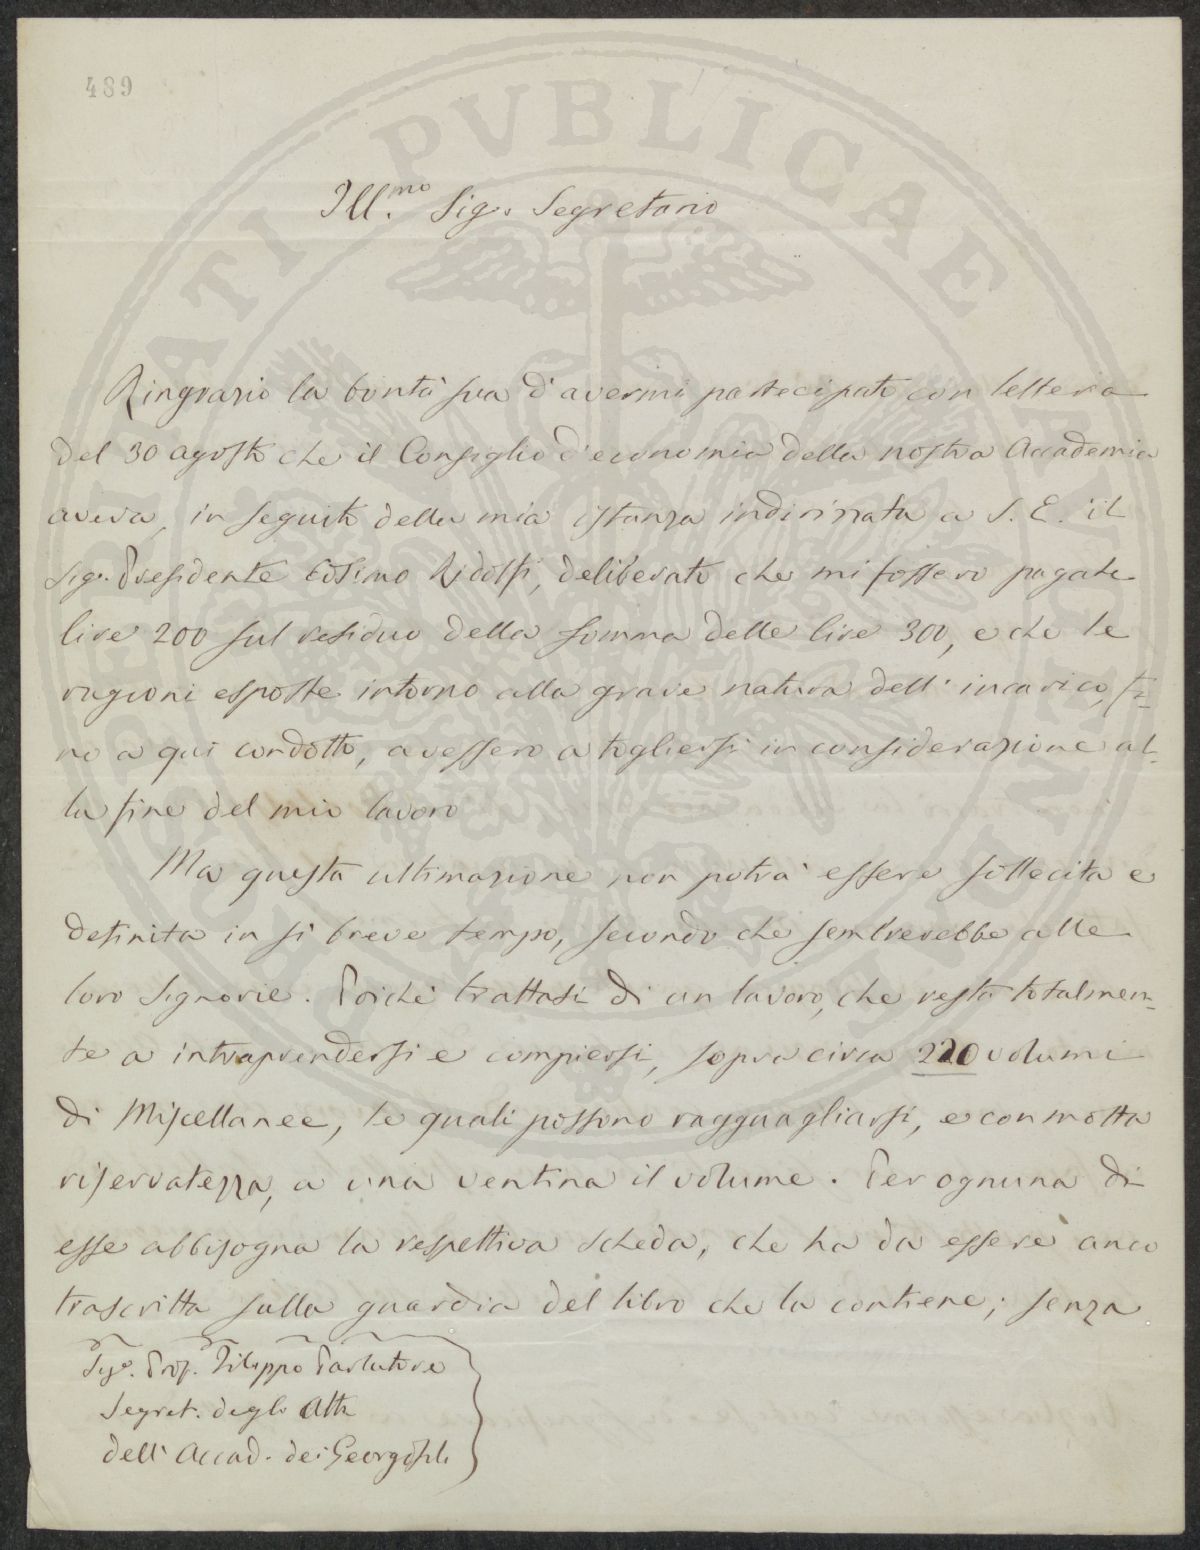 489
Ill.mo Sig. Segretario
Ringrazio la bontà sua d'avermi partecipato con lettera
del 30 agosto che il Consiglio d'economia della nostra Accademia
aveva, in seguito della mia istanza indirizzata a S. E. il
Sig. Presidente Cosimo Ridolfi, deliberato che mi fossero pagate
lire 200 sul residuo della somma delle lire 300, e che le
ragioni esposte intorno alla grave natura dell'incarico, fi-
no a qui condotto, avessero a togliersi in considerazione al-
la fine del mio lavoro
Ma questa ultimazione non potrà essere sollecita e
definita in sì breve tempo, secondo che sembrerebbe alle
loro Signorie. Poichè trattasi di un lavoro, che resta totalmen-
te a intraprendersi e compiersi, sopra circa 220 volumi
di Miscellanee, le quali possono ragguagliarsi, e con molta
riservatezza, a una ventina il volume. Per ognuna di
esse abbisogna la respettiva scheda, che ha da essere anco
trascritta sulla guardia del libro che la contiene; senza
Sig. Prof. Filippo Parlatore
Segret. degli Atti
dell'Accad. dei Georgofili
PVBLICAE